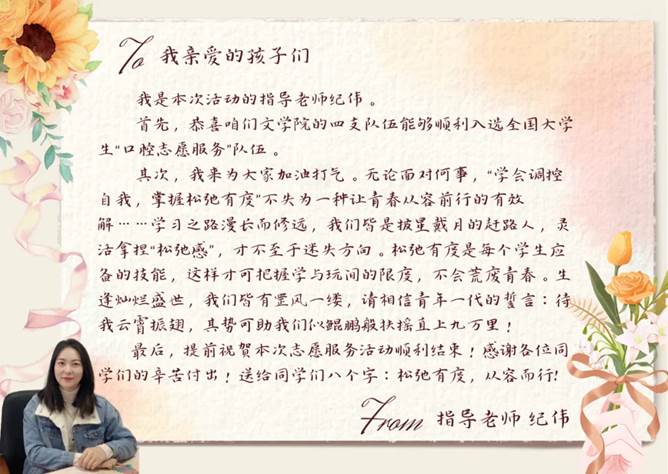 To 我亲爱的孩子们
我是本次活动的指导老师纪伟。
首先，恭喜咱们文学院的四支队伍能够顺利入选全国大学
生“口腔志愿服务”队伍。
其次，我来为大家加油打气。无论面对何事，“学会调控
自我，掌握松弛有度”不失为一种让青春从容前行的有效
解……学习之路漫长而修远，我们皆是披星戴月的赶路人，灵
活拿捏“松弛感”，才不至于迷失方向。松弛有度是每个学生应
备的技能，这样才可把握学与玩间的限度，不会荒废青春。生
逢灿烂盛世，我们皆有罡风一缕，请相信青年一代的誓言：待
我云霄振翅，其势可助我们似鲲鹏般扶摇直上九万里！
最后，提前祝贺本次志愿服务活动顺利结束！感谢各位同
学们的辛苦付出！送给同学们八个字：松弛有度，从容而行!
From 指导老师 纪伟